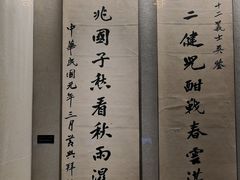 十二義士英鑒
二健兒酣戰春雲湛
兆國子愁看秋雨濕
中華民國元年三月黃興拜